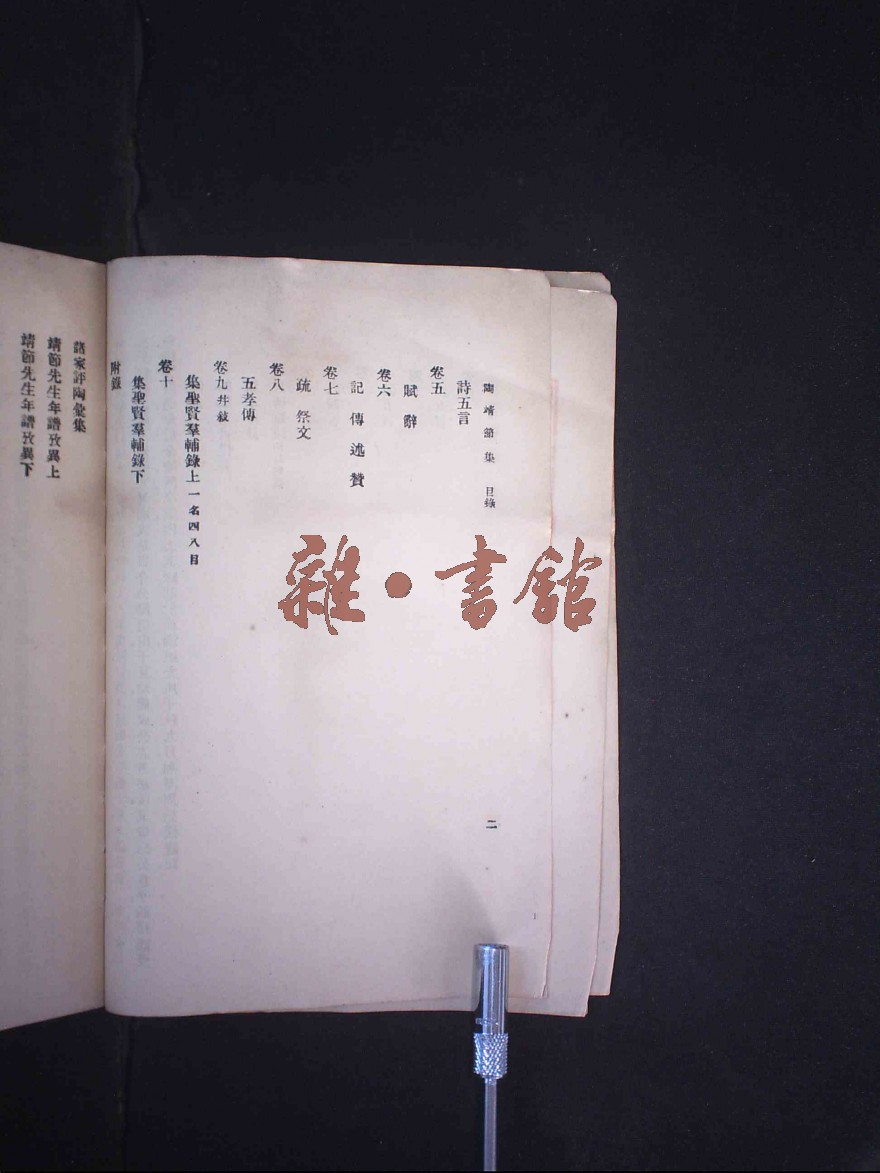 陶靖節集 目錄
二
詩五言
卷五
賦 辭
卷六
記 傳 述 贊
卷七
疏 祭文
卷八
五孝傳
卷九幷敍
集聖賢羣輔錄上一名四八目
卷十
集聖賢羣輔錄下
附錄
諸家評陶彙集
靖節先生年譜攷異上
靖節先生年譜攷異下
雜·書館